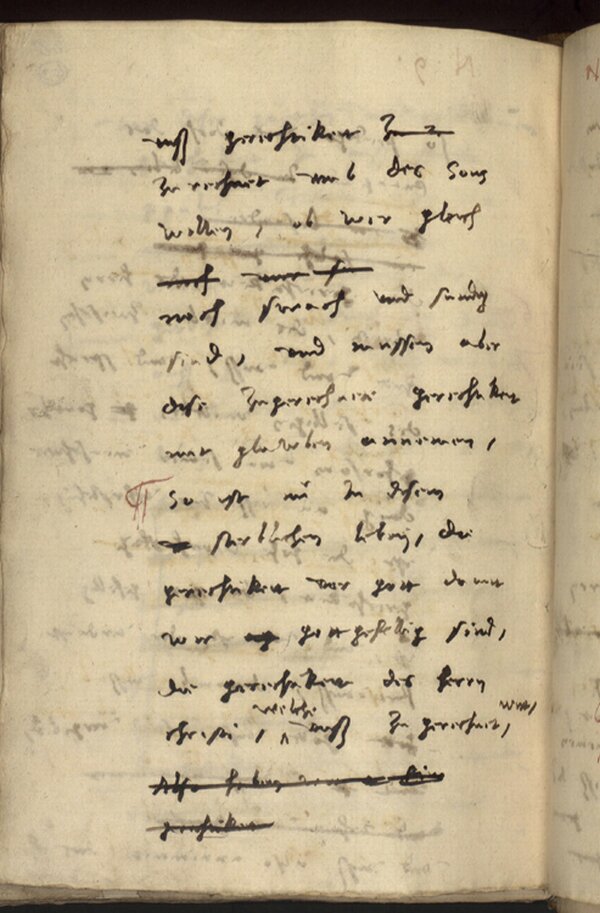 unß gerechtikeit
zu rechnet umb des Sons
willen, ob wir gleich
noch swach und sundig
sind, und mussen aber
dise zugerechnete gerechtikeit
mit glawben annemen,
¶ So ist nu in disem
sterblichen leben, die
gerechtikeit vor gott damit
wir gottgefellig sind,
die gerechtikeit des herrn
christi, welche unß zugerechnet, wirt,
Also haben wir
gerechtikeit